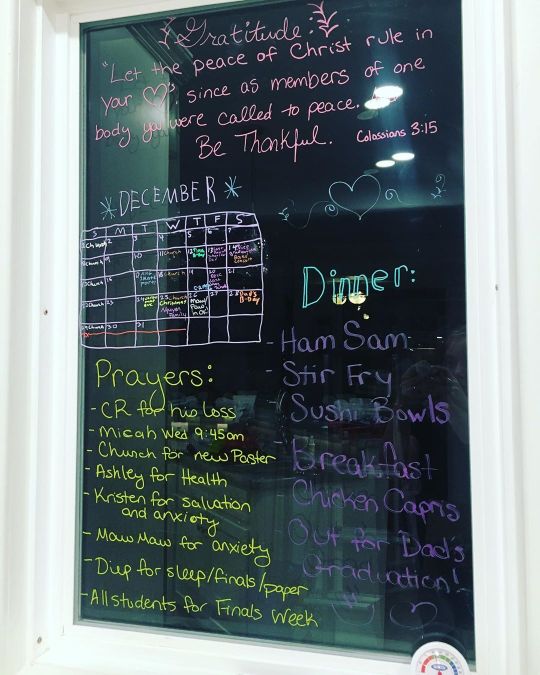 Gratitude:
"Let the peace of Christ rule in
your ♡'s since as members of one
body you were called to peace.
Be Thankful. Colossians 3:15
DECEMBER
S M T W T F S
1 Church 2 3 4 5 6 7
8 Church 9 10 11 Church 12 13 14
15 Church 16 17 18 Church 19 20 21
22 Church 23 24 25 Church 26 27 28 Dad's
Christmas B-Day
29 Church 30 31
Dinner:
- Ham Sam
- Stir Fry
- Sushi Bowls
- Breakfast
Chicken Capris
Out for Dad's
Graduation!
Prayers:
- CR for his loss
- Micah Wed 9:45am
- Church for new Paster
- Ashley for Health
- Kristen for salvation
and anxiety
- MawMaw for anxiety
- Diep for sleep/finals/paper
- All students for Finals Week